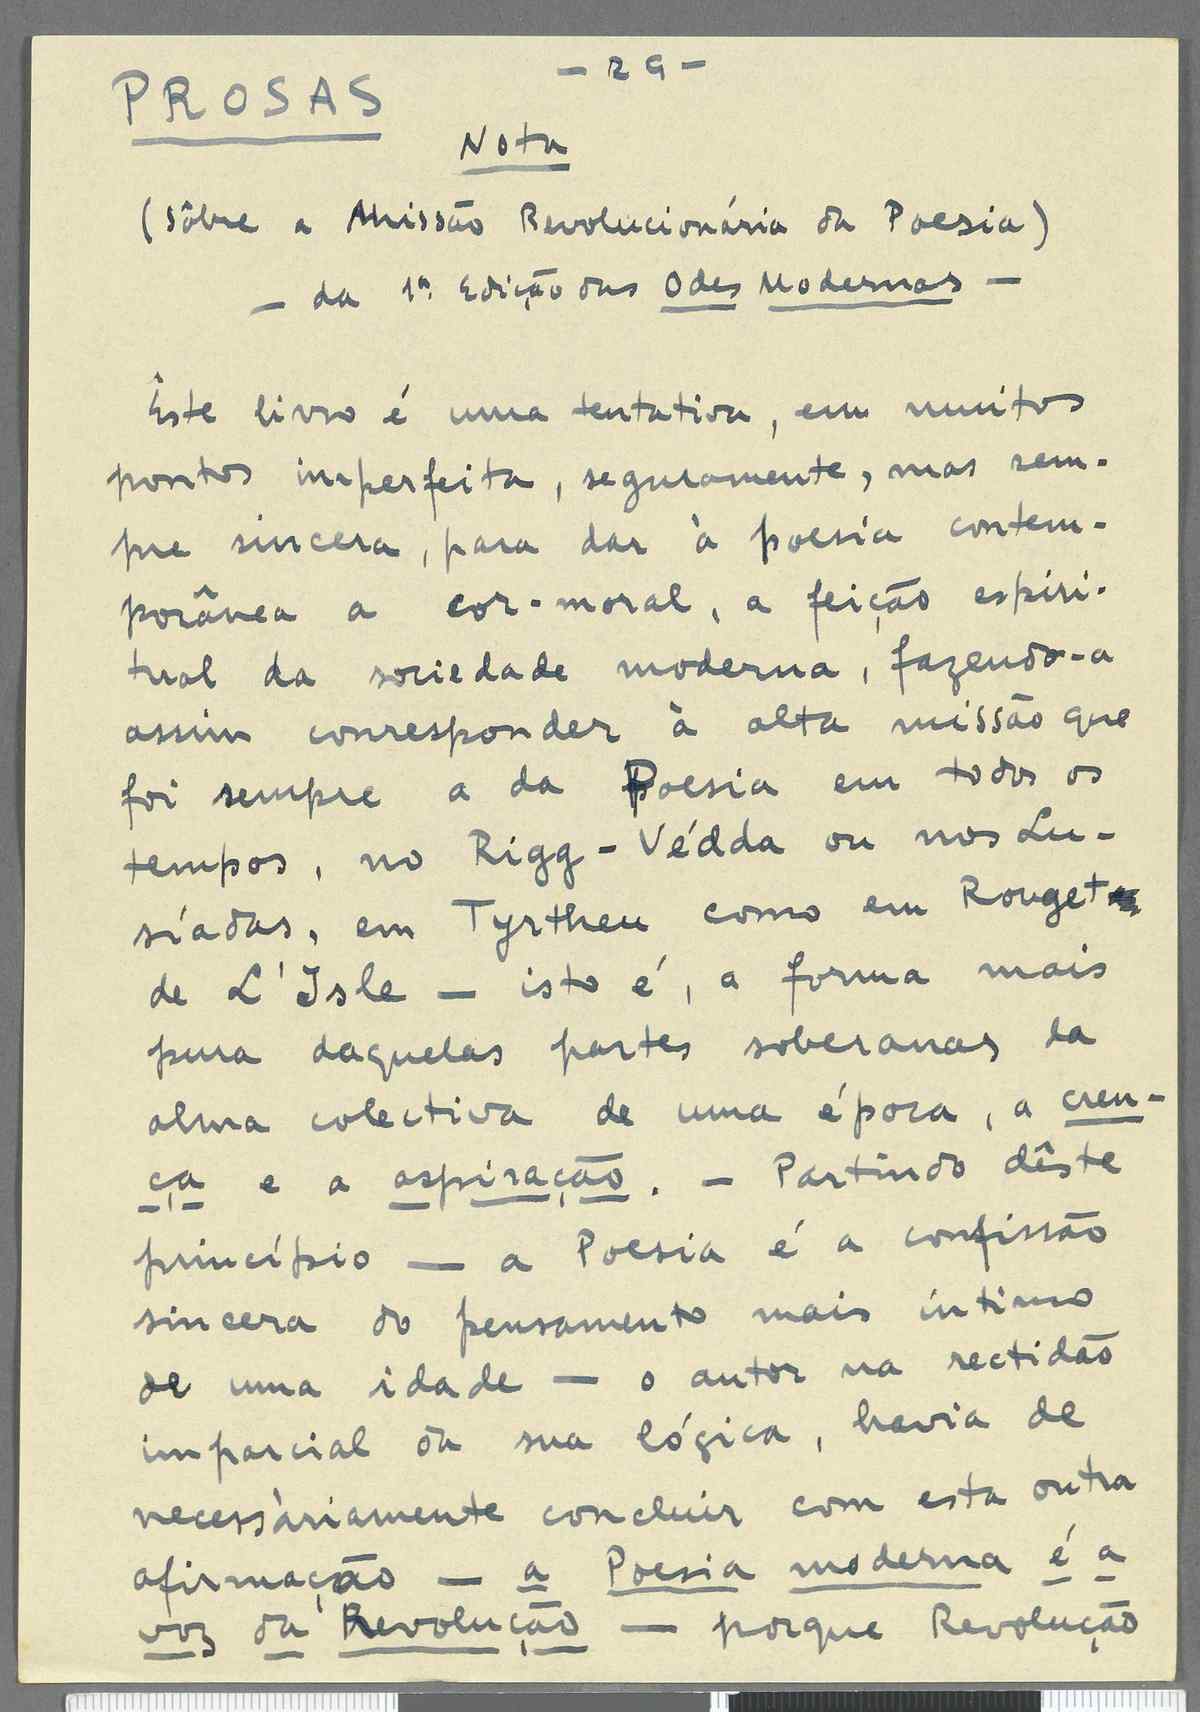 - 29 -
PROSAS
Nota
(Sôbre a Missão Revolucionária da Poesia)
- da 1ª. Edição das Odes Modernas -
Êste livro é uma tentativa, em muitos
pontos imperfeita, seguramente, mas sem-
pre sincera, para dar à poesia contem-
porânea a cor-moral, a feição espiri-
tual da sociedade moderna, fazendo-a
assim corresponder à alta missão que
foi sempre a da Poesia em todos os
tempos, no Rigg-Védda ou nos Lu-
síadas, em Tyrtheu como em Rouget
de L'Isle — isto é, a forma mais
pura daquelas partes soberanas da
alma colectiva de uma época, a cren-
ça e a aspiração. - Partindo dêste
princípio — a Poesia é a confissão
sincera do pensamento mais íntimo
de uma idade — o autor na rectidão
imparcial da sua lógica, havia de
necessàriamente concluir com esta outra
afirmação — a Poesia moderna é a
voz da Revolução — porque Revolução